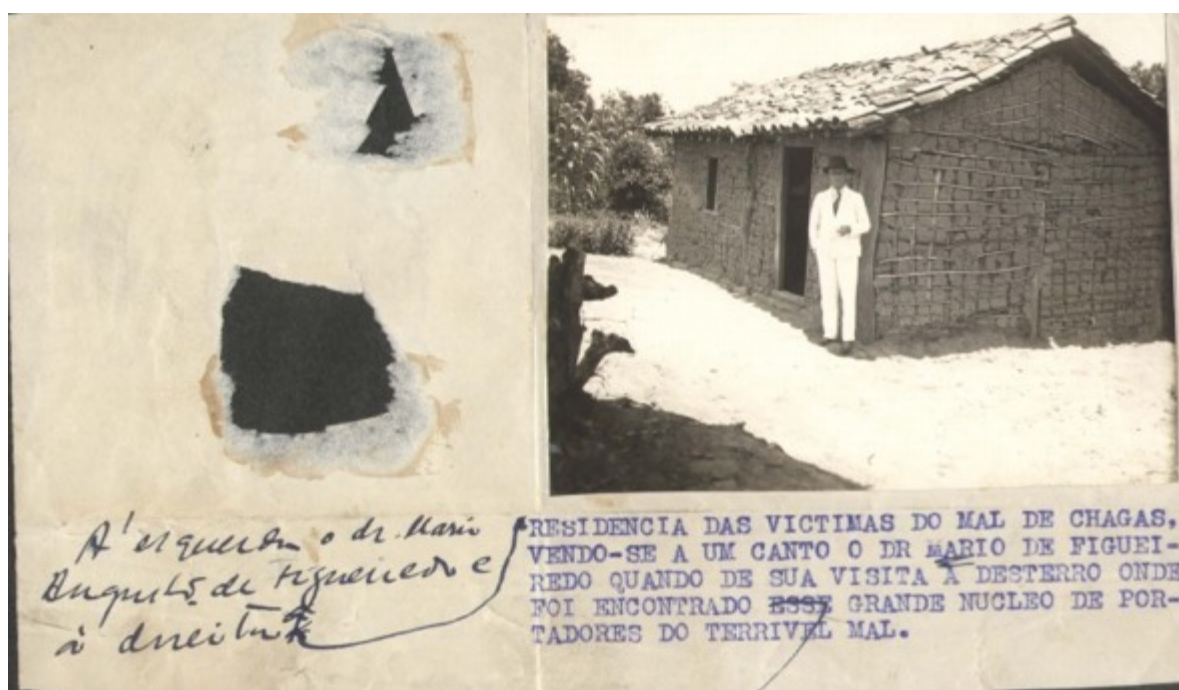 A' esquerda o dr. Mario
Augusto de Figueiredo e
à direita a
RESIDENCIA DAS VICTIMAS DO MAL DE CHAGAS,
VENDO-SE A UM CANTO O DR MARIO DE FIGUEI-
REDO QUANDO DE SUA VISITA A DESTERRO ONDE
FOI ENCONTRADO ESSE GRANDE NUCLEO DE POR-
TADORES DO TERRIVEL MAL.